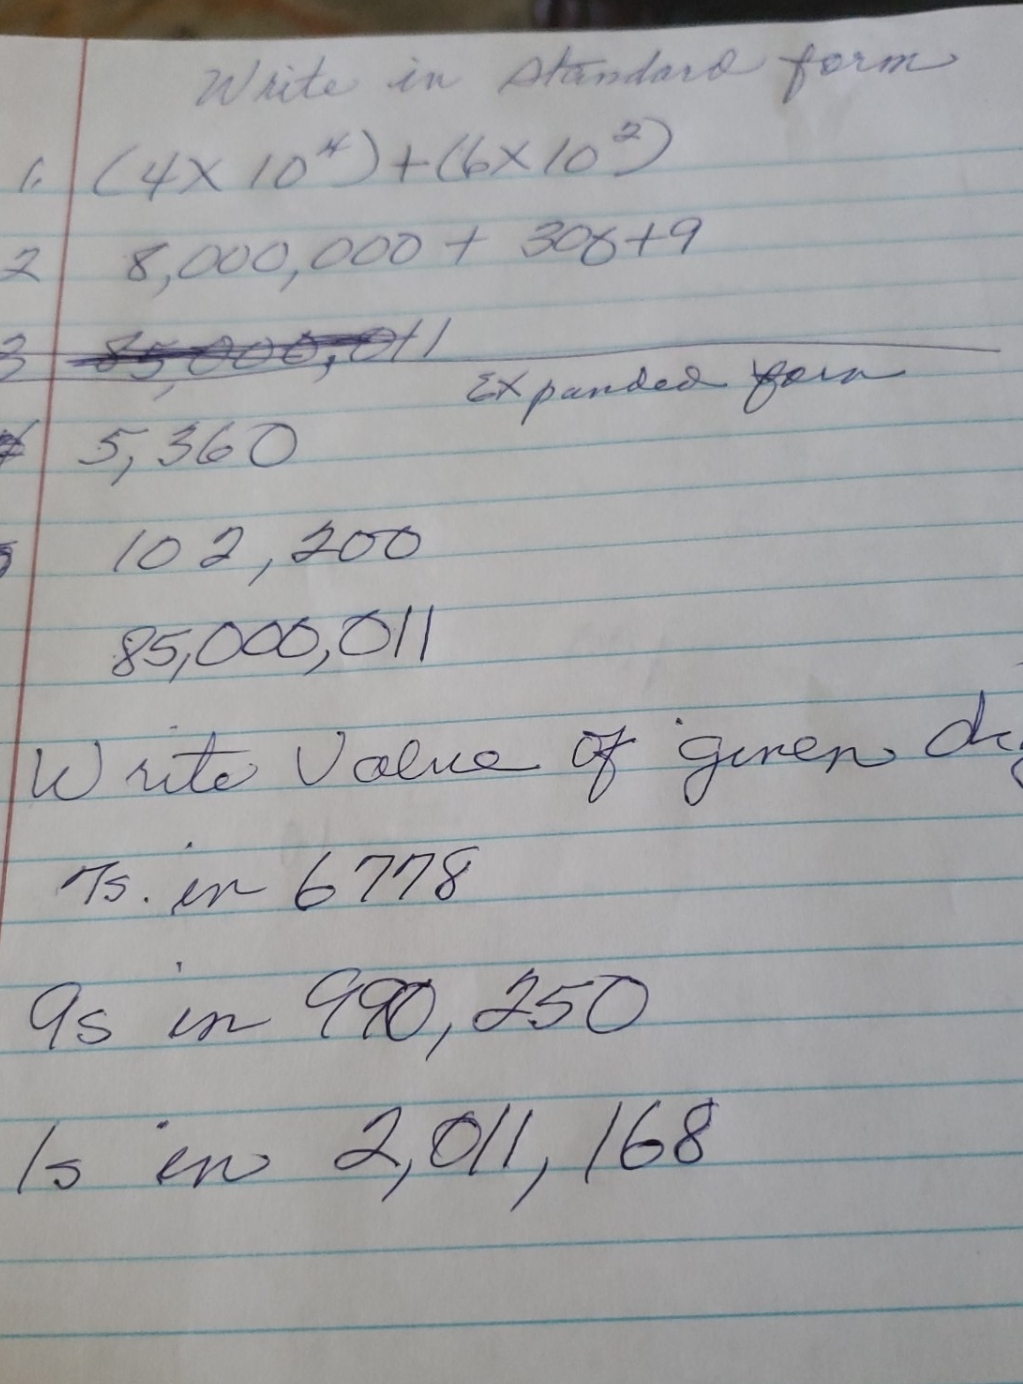 Write in standard form
1. (4 x 10⁴) + (6 x 10²)
2 8,000,000 + 308 + 9
3 85,000,011
Expanded form
5,360
5 102,200
85,000,011
Write Value of given
7s. in 6778
9s in 990,250
1s in 2,011,168